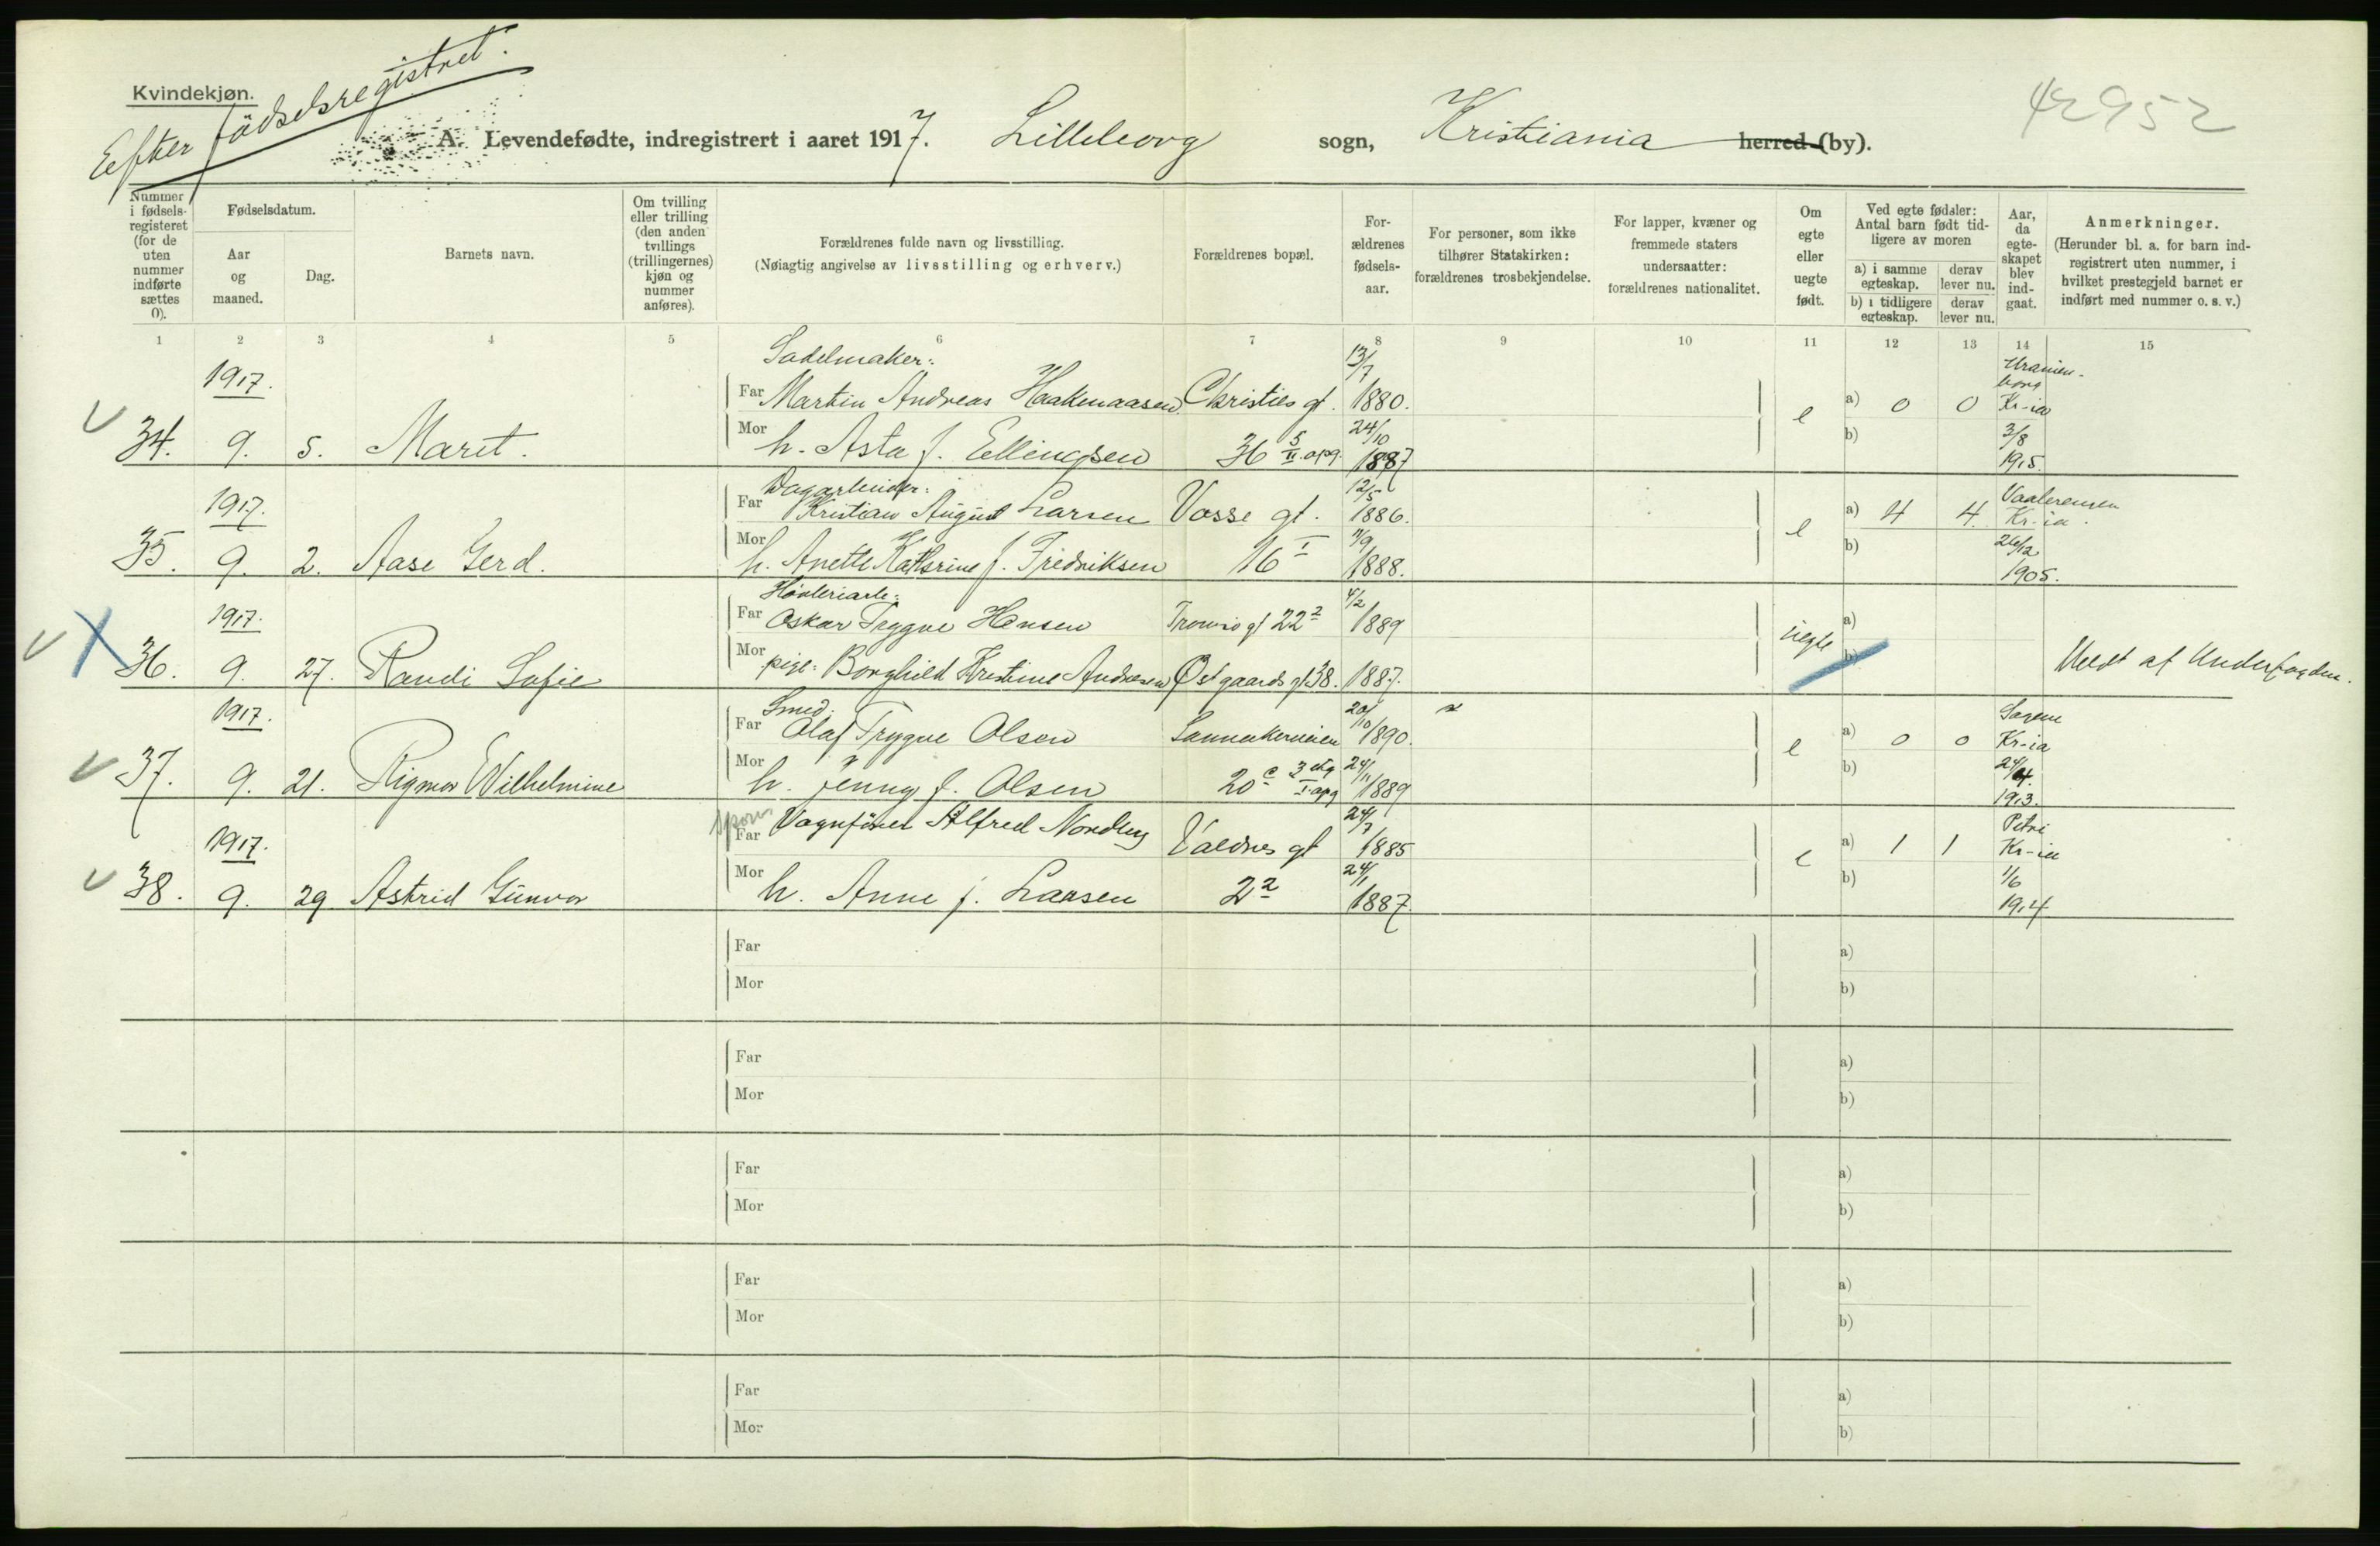 Kvindekjøn.
Efter fødselsregistret.
42952
A. Levendefødte, indregistrert i aaret 1917. Lilleborg sogn, Kristiania herred (by).
Nummer i fødsels-registeret (for de uten nummer indførte sættes 0).
Fødselsdatum.
Aar og maaned.
Dag.
Barnets navn.
Om tvilling eller trilling (den anden tvillings (trillingernes) kjøn og nummer anføres).
Forældrenes fulde navn og livsstilling.
(Nøiagtig angivelse av livsstilling og erhverv.)
Forældrenes bopæl.
For-ældrenes fødsels-aar.
For personer, som ikke tilhører Statskirken: forældrenes trosbekjendelse.
For lapper, kvæner og fremmede staters undersaatter: forældrenes nationalitet.
Om egte eller uegte født.
Ved egte fødsler: Antal barn født tid-ligere av moren
a) i samme egteskap.
derav lever nu.
b) i tidligere egteskap.
derav lever nu.
Aar, da egte-skapet blev ind-gaat.
Anmerkninger.
(Herunder bl. a. for barn ind-registrert uten nummer, i hvilket prestegjeld barnet er indført med nummer o. s. v.)
1 2 3 4 5 6 7 8 9 10 11 12 13 14 15
1917. Sadelmaker: 13/7 Uranien-borg
Far Martin Andreas Haakenaasen Christies gt. 1880. a) 0 0 Kr-ia
34. 9. 5. Maret. Mor h. Asta f. Ellingsen 36 5 II. opg. 24/10 1887 e b) 3/8 1915.
1917. Dagarbeider: 12/5 Vaalerengen
Far Kristian August Larsen Vosse gt. 1886. a) 4 4 Kr-ia.
35. 9. 2. Aase Gerd. Mor h. Anette Kathrine f. Fredriksen 16 I 11/9 1888. e b) 26/12 1905.
1917. Høvleriarb: 4/2
Far Oskar Trygve Hansen Tromsø gt 22 2 1889 a)
36. 9. 27. Randi Sofie Mor pige: Borghild Kristine Andresen Østgaards gt 38. 1887. uegte b) Meldt af Underfogden.
1917. Smed. 20/10 Sagene
Far Olaf Trygve Olsen Sannerkerveien 1890. a) 0 0 Kr-ia
37. 9. 21. Rigmor Wilhelmine Mor h. Jenny f. Olsen 20 c 3 etg I. opg 24/11 1889 e b) 1913.
1917. Spor Vognfører 24/7 Petri
Far Alfred Nordby Valdres gt 1885 a) 1 1 Kr-ia
38. 9. 29 Astrid Gunvor Mor h. Anne f. Larsen 2 2 24/1 1887. e b) 1/6 1914
Far a)
Mor b)
Far a)
Mor b)
Far a)
Mor b)
Far a)
Mor b)
Far a)
Mor b)